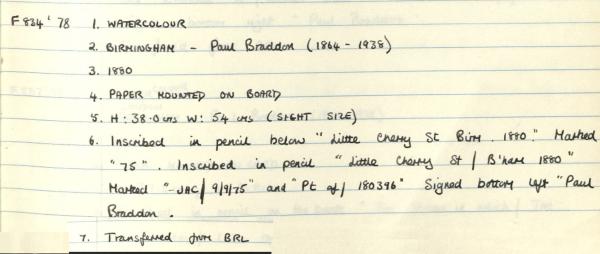 F834'78 1. WATERCOLOUR
2. BIRMINGHAM - Paul Braddon (1864 - 1938)
3. 1880
4. PAPER MOUNTED ON BOARD
5. H: 38.0 cms W: 54 cms (SIGHT SIZE)
6. Inscribed in pencil below "Little Cherry St Birm. 1880." Marked
"75". Inscribed in pencil "Little Cherry St / B'ham 1880"
Marked "JAC/ 9/9/75" and "Pt of/ 180396" Signed bottom left "Paul
Braddon.
7. Transferred from BRL